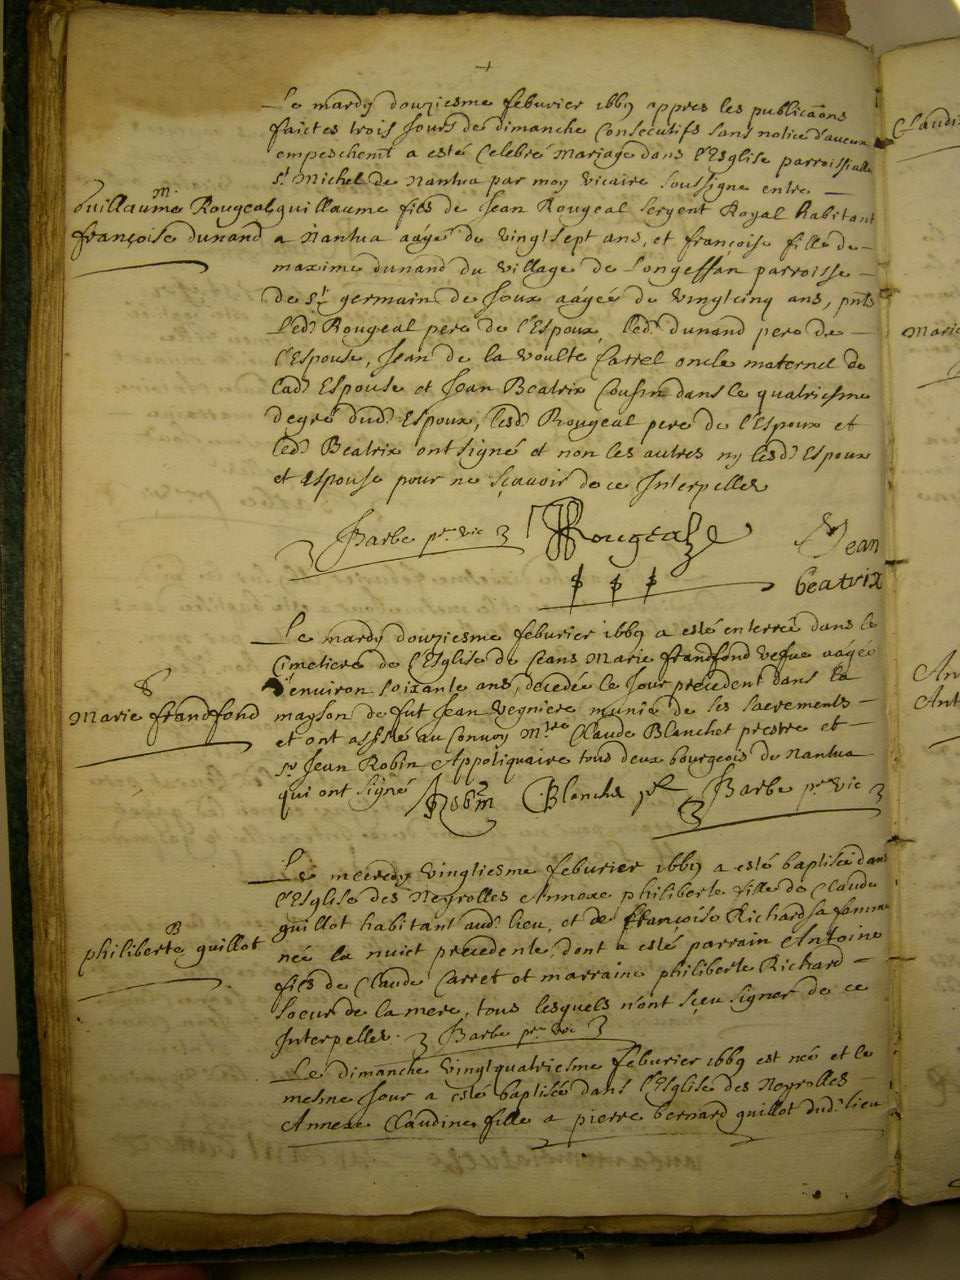 Le mardy douziesme feburier 1669 appres les publicãons
faictes trois Jours de dimanche Consecutifs sans notice d'aucun
empeschemt a esté Celebré Mariage dans l'Esglise parroissialle
st Michel de Nantua par moy vicaire soussigne entre
M.
Guillaume Rougeal
françoise dunand
guillaume fils de Jean Rougeal sergent Royal habitant
a Nantua aagé de vingtsept ans, et françoise fille de
maxime dunand du village de Longeffan parroisse
de st germain de Joux aagée de vingtcinq ans, pnts
Led. Rougeal pere de l'Espoux, led. dunand pere de
l'Espouse, Jean de la voulte Carrel oncle maternel de
lad. Espouse et Jean Beatrix Cousin dans le quatriesme
degré dud. Espoux, lesd. Rougeal pere de l'Espoux et
led. Beatrix ont signé et non les autres ny lesd. Espoux
et Espouse pour ne sçavoir de ce Interpelles
Barbe pr. vic
Rougeal
Jean
beatrix
Le mardy douziesme feburier 1669 a esté enterrée dans le
Cimetiere de l'Esglise de Ceans Marie frandfond vefue aagée
d'environ soixante ans, decedée le Jour precedent dans la
S
Marie frandfond
mayson de fut Jean vegniere munie de ses sacrements
et ont assisté au Convoy Mre Claude Blanchet prestre et
sr Jean Robin Appotiquaire tous deux bourgeois de Nantua
qui ont signé
Robin
Blanchet
Barbe pr. vic
Le mecredy vingtiesme feburier 1669 a esté baptisée dans
l'Esglise des Neyrolles Annexe philiberte fille de Claude
guillot habitant aud. lieu, et de françoise Richard sa femme
B
philiberte guillot
née la nuict precedente, dont a esté parrain Antoine
fils de Claude Carret et marraine philiberte Richard
soeur de la mere, tous lesquels n'ont sçeu signer de ce
Interpelles.
Barbe pr. vic
Le dimanche vingtquatriesme feburier 1669 est née et le
mesme Jour a esté baptisée dans l'Esglise des Neyrolles
Annexe Claudine fille a pierre bernard guillot dud. lieu